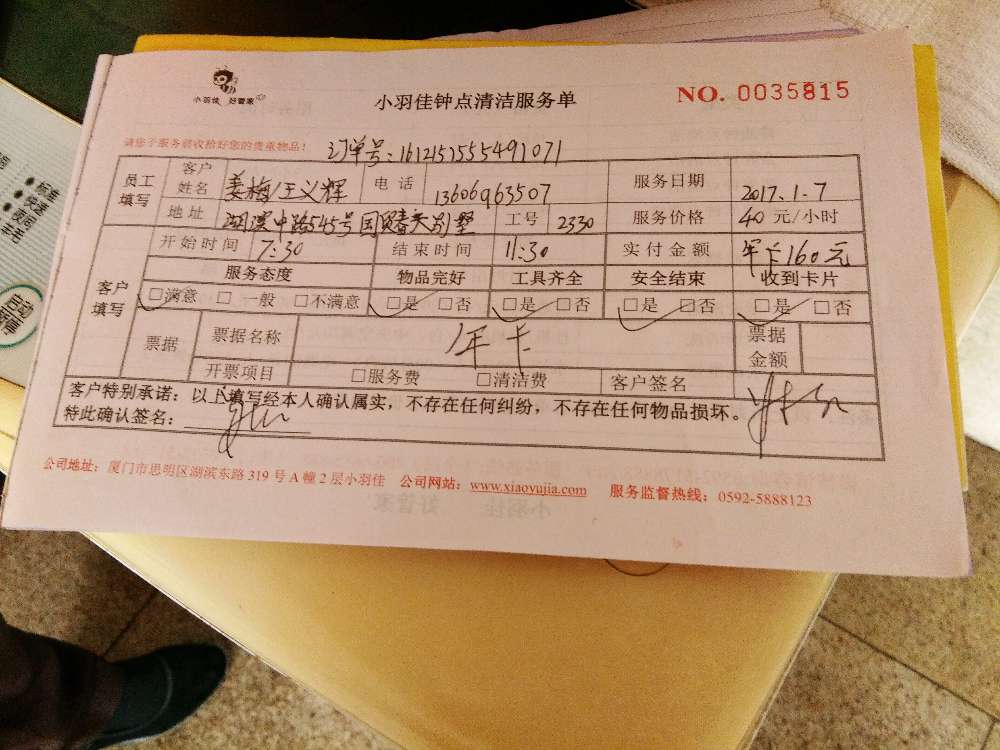 小羽佳 好管家
小羽佳钟点清洁服务单
NO. 0035815
请您于服务前收拾好您的贵重物品！
订单号：1612151555491071
员工填写 客户姓名 姜梅/王义辉 电话 13606963507 服务日期 2017.1.7
地址 湖滨中路545号国贸春天别墅 工号 2330 服务价格 40元/小时
客户填写 开始时间 7:30 结束时间 11:30 实付金额 年卡160元
服务态度 物品完好 工具齐全 安全结束 收到卡片
☑满意 □一般 □不满意 ☑是 □否 ☑是 □否 ☑是 □否 ☑是 □否
票据 票据名称 年卡 票据金额
开票项目 □服务费 □清洁费 客户签名
客户特别承诺：以上填写经本人确认属实，不存在任何纠纷，不存在任何物品损坏。
特此确认签名：
公司地址：厦门市思明区湖滨东路319号A幢2层小羽佳 公司网站：www.xiaoyujia.com 服务监督热线：0592-5888123
标准
快速